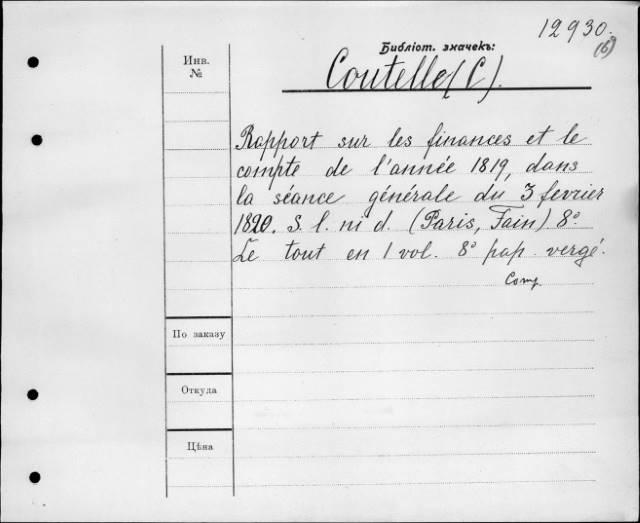 12930.
(6)
Библіот. значекъ:
Инв.
№
Coutelle (C).
Rapport sur les finances et le
compte de l'année 1819, dans
la séance générale du 3 fevrier
1820. S. l. ni d. (Paris, Fain) 8º.
Le tout en 1 vol. 8º pap. vergé.
Comp.
По заказу
Откуда
Цѣна